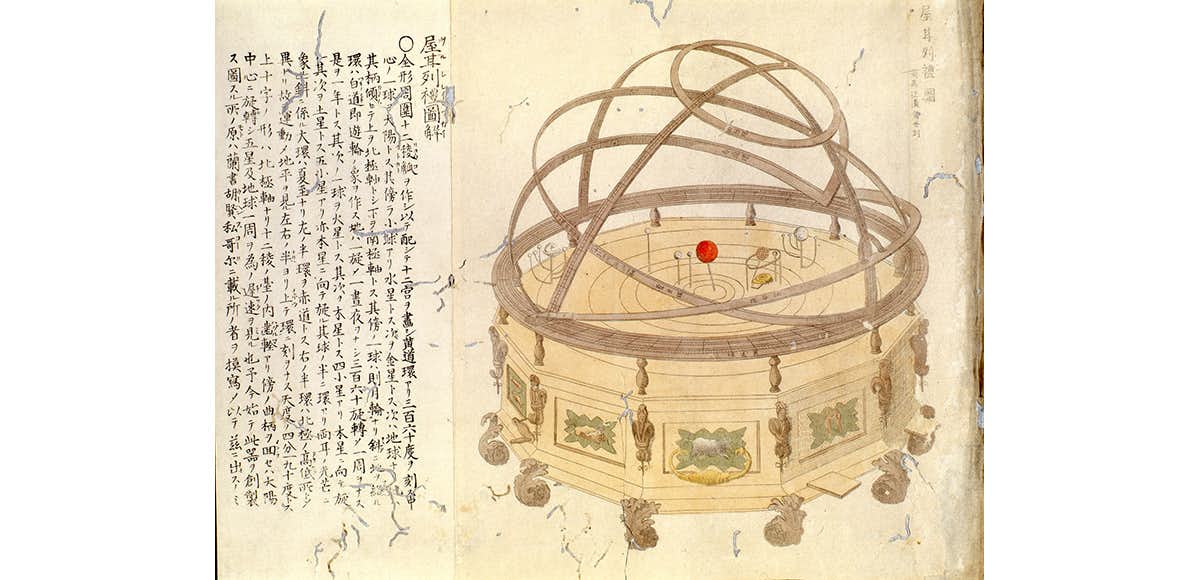 屋耳列禮圖
屋耳列禮圖解
〇全形周圍十二稜觚ヲ作シ以テ配シテ十二宮ヲ畫シ黄道環アリ三百六十度ヲ刻
心ノ一球ヲ太陽トス其傍ラ小球アリ水星トス次ヲ金星トス次ハ地球トス
其柄傾ヒテ上ヲ北極軸トシ下ヲ南極軸トス其傍ノ一球ハ則月輪ナリ斜ニ地ヲ
環ハ白道即遊輪ノ象ヲ作ス地ハ一旋ノ一晝夜ヲナシ三百六十旋轉ノ一周ヲナス
是ヲ一年トス其次ノ一球ヲ火星トス其次ヲ木星トス四小星アリ木星ニ向テ旋
其次ヲ土星トス五小星アリ亦本星ニ向テ旋ル其球ノ半ニ環アリ両耳ノ光芒ニ
象ル斜ニ係ル大環ハ夏至ナリ左ノ半環ヲ赤道トス右ノ半環ハ北極ノ高低所ニシ
異ナリ故運動ノ地平ヲ見左右ノ半ヨリ上テ環ニ刻ヲナス天度ノ四分一九十度トス
上十字ノ形ハ北極軸ナリ十二稜ノ臺ノ内轆轤アリ傍ノ曲柄ヲ回セハ太陽
中心ニ旋轉シ五星及地球一周ヲ為ノ遅速ヲ見ル也予今始テ此器ヲ創製
ス圖スル所ノ原ハ蘭書胡賢私哥ルニ載ル所ノ者ヲ摸寫ノ以テ茲ニ出スノミ